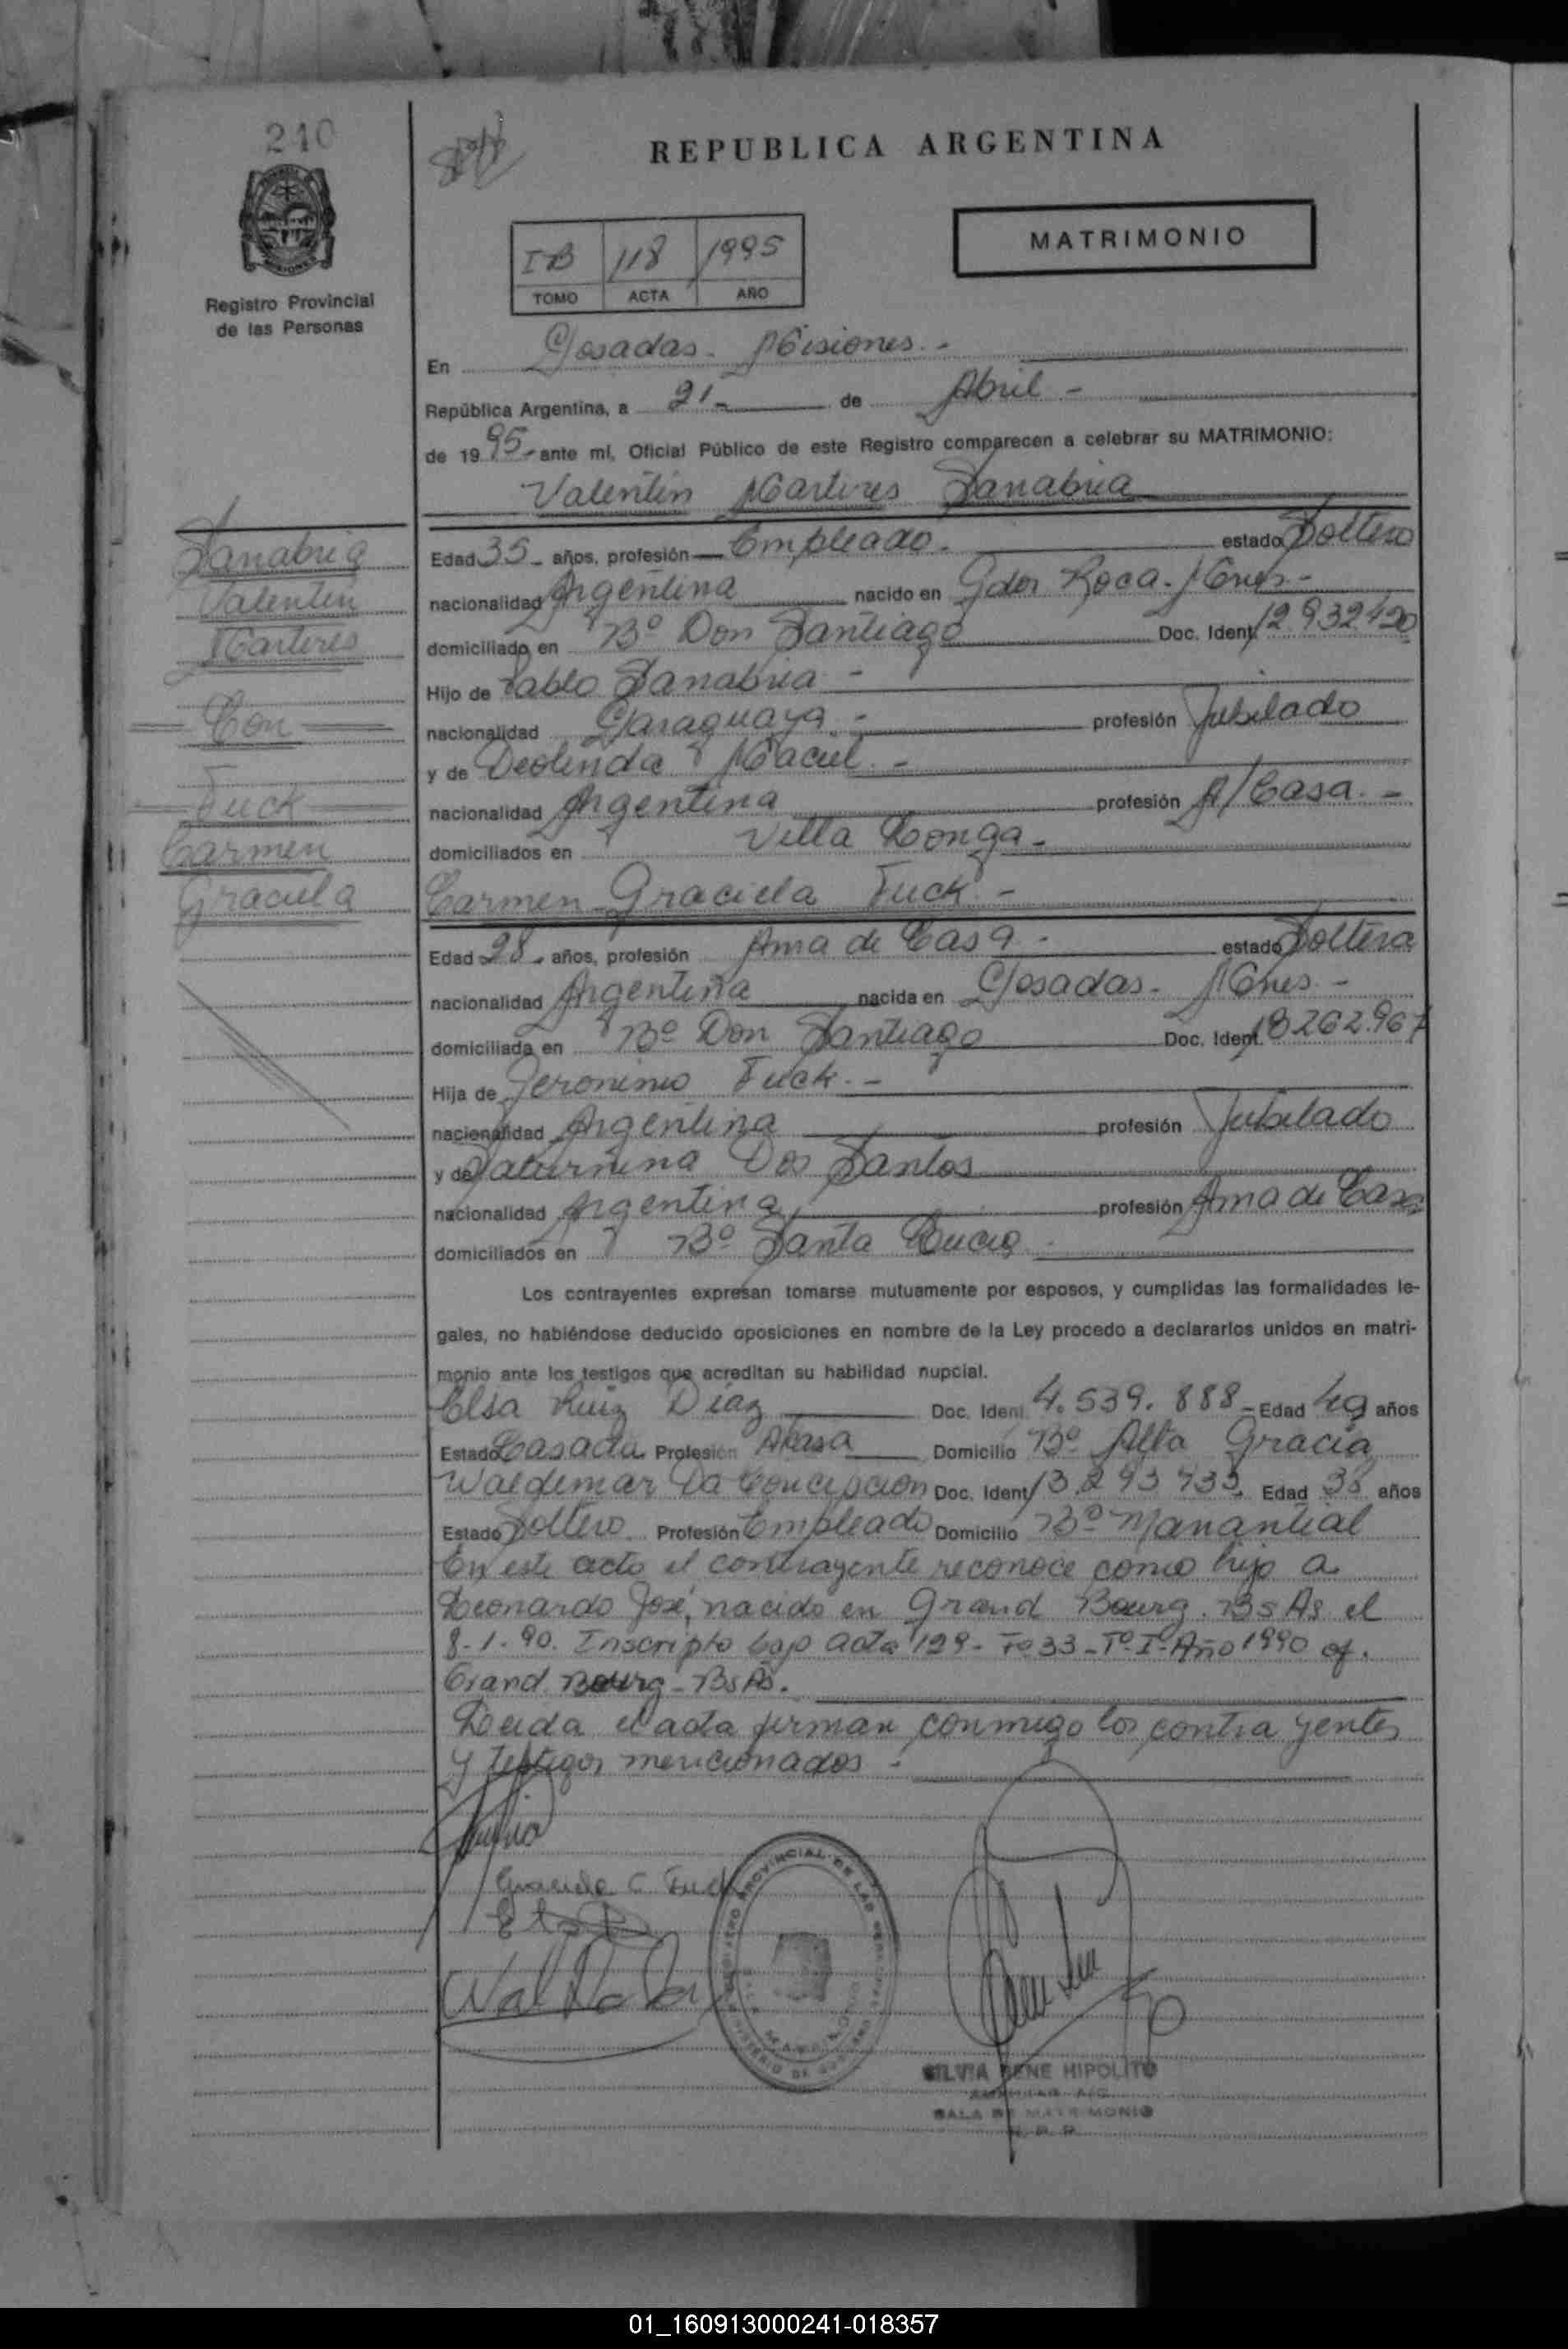 210
REPUBLICA ARGENTINA
MATRIMONIO
IB 118 1995
TOMO ACTA AÑO
Registro Provincial
de las Personas
En Posadas - Misiones.-
República Argentina, a 21- de Abril -
de 1995- ante mí, Oficial Público de este Registro comparecen a celebrar su MATRIMONIO:
Valentin Martires Sanabria
Sanabria
Valentin
Martires
Con
Fuck
Carmen
Graciela
Edad 35- años, profesión Empleado. estado Soltero
nacionalidad Argentina nacido en Gdor Roca - Mnes-
domiciliado en Bº Don Santiago Doc. Ident. 12.932.420
Hijo de Pablo Sanabria -
nacionalidad Paraguaya.- profesión Jubilado
y de Deolinda Maciel -
nacionalidad Argentina profesión A/Casa.-
domiciliados en Villa Longa-
Carmen Graciela Fuck -
Edad 28- años, profesión Ama de Casa - estado Soltera
nacionalidad Argentina nacida en Posadas - Mnes -
domiciliada en Bº Don Santiago Doc. Ident. 18262.967
Hija de Jeronimo Fuck.-
nacionalidad Argentina profesión Jubilado
y de Saturnina Dos Santos
nacionalidad Argentina profesión Ama de Casa
domiciliados en Bº Santa Lucia -
Los contrayentes expresan tomarse mutuamente por esposos, y cumplidas las formalidades le-
gales, no habiéndose deducido oposiciones en nombre de la Ley procedo a declararlos unidos en matri-
monio ante los testigos que acreditan su habilidad nupcial.
Elsa Ruiz Diaz Doc. Ident. 4.539.888- Edad 49 años
Estado Casada Profesión A/Casa Domicilio Bº Alta Gracia
Waldemar Da Concepcion Doc. Ident. 13.293.433. Edad 38 años
Estado Soltero Profesión Empleado Domicilio Bº Manantial
En este acto el contrayente reconoce como hijo a
Leonardo José, nacido en Grand Bourg. Bs As el
8-1-90. Inscripto bajo acta 129- Fº 33- Tº I- Año 1990 of.
Grand Bourg - Bs As.
Leida el acta firman conmigo los contrayentes
y testigos mencionados -
Graciela C. Fuck
SILVIA RENE HIPOLITO
SALA DE MATRIMONIO
R. P. P.
01_160913000241-018357